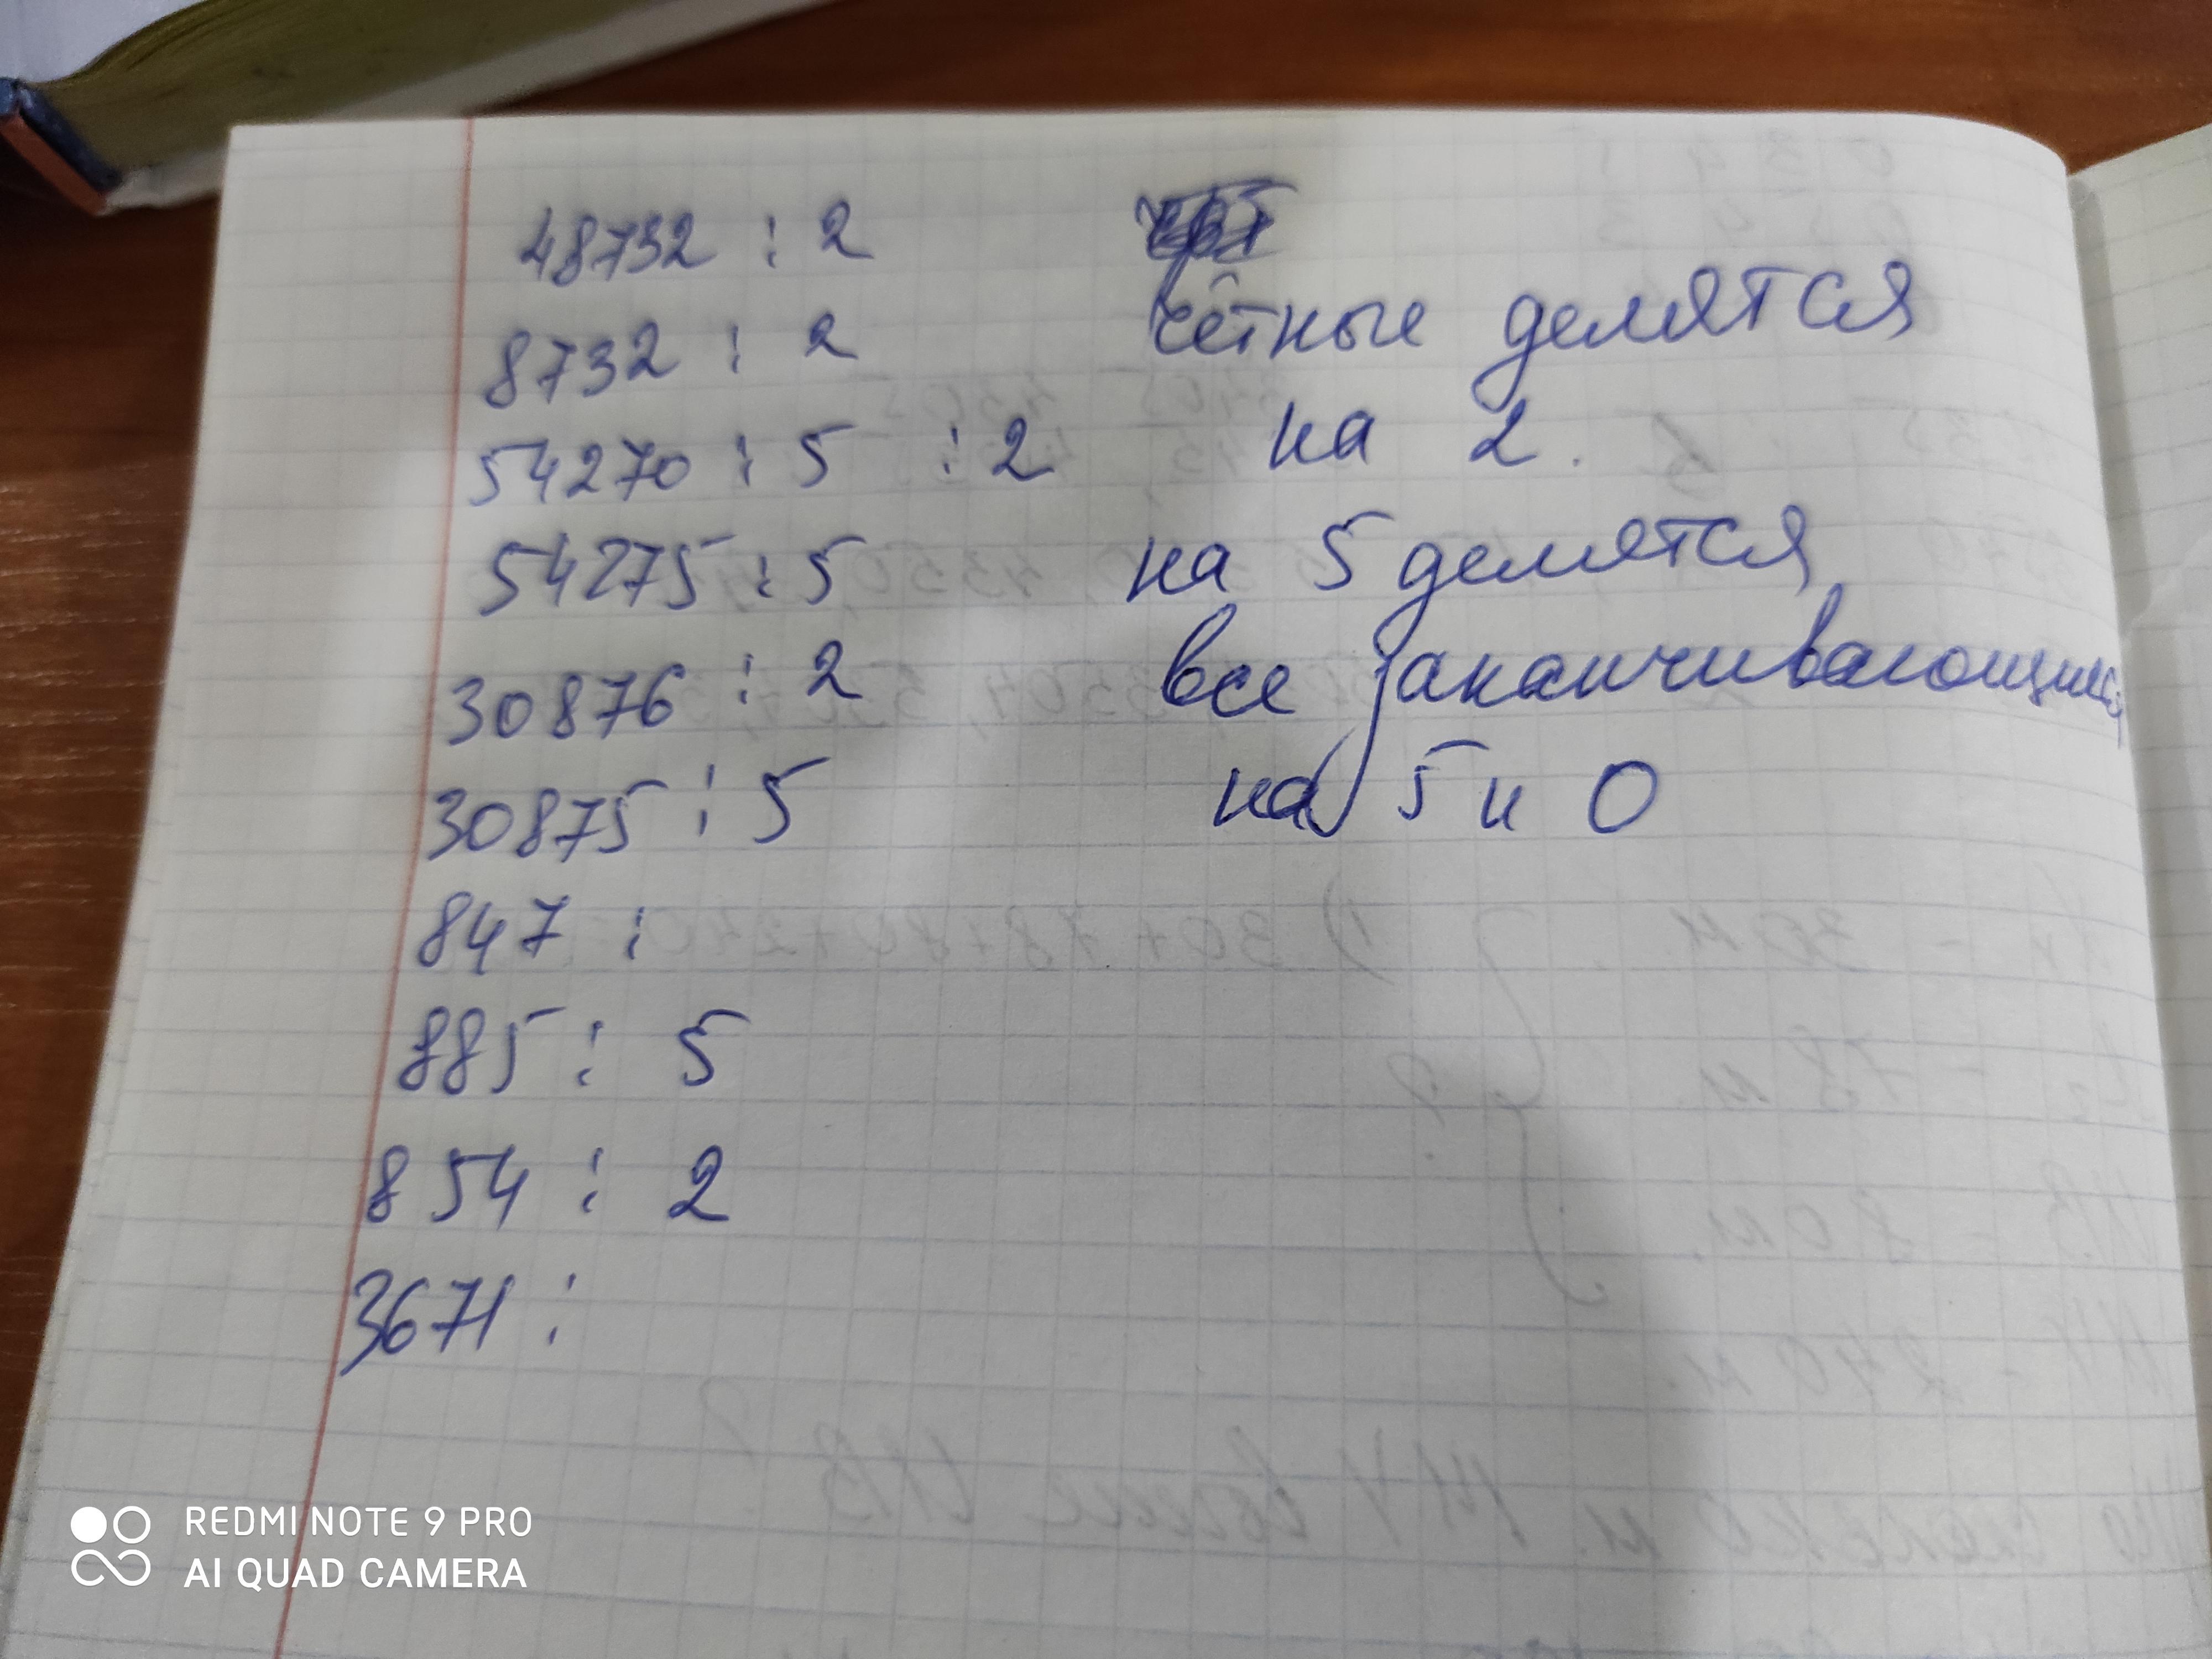 48732 : 2
8732 : 2
54270 : 5 : 2
54275 : 5
30876 : 2
30875 : 5
847 :
885 : 5
854 : 2
3671 :
чётные делятся
на 2.
на 5 делятся
все заканчивающиеся
на 5 и 0
REDMI NOTE 9 PRO
AI QUAD CAMERA